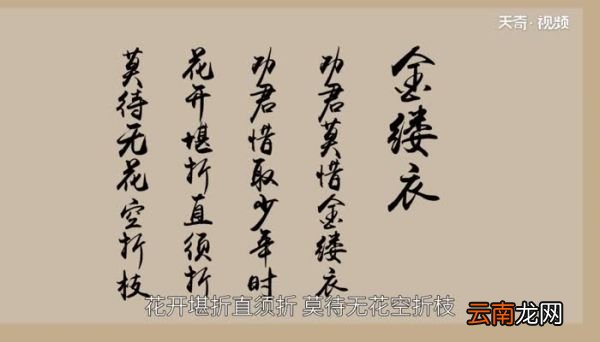 天奇·视频
金缕衣
功君莫惜金缕衣
功君惜取少年时
花开堪折直须折
莫待无花空折枝
花开堪折直须折 莫待无花空折枝
云南龙网